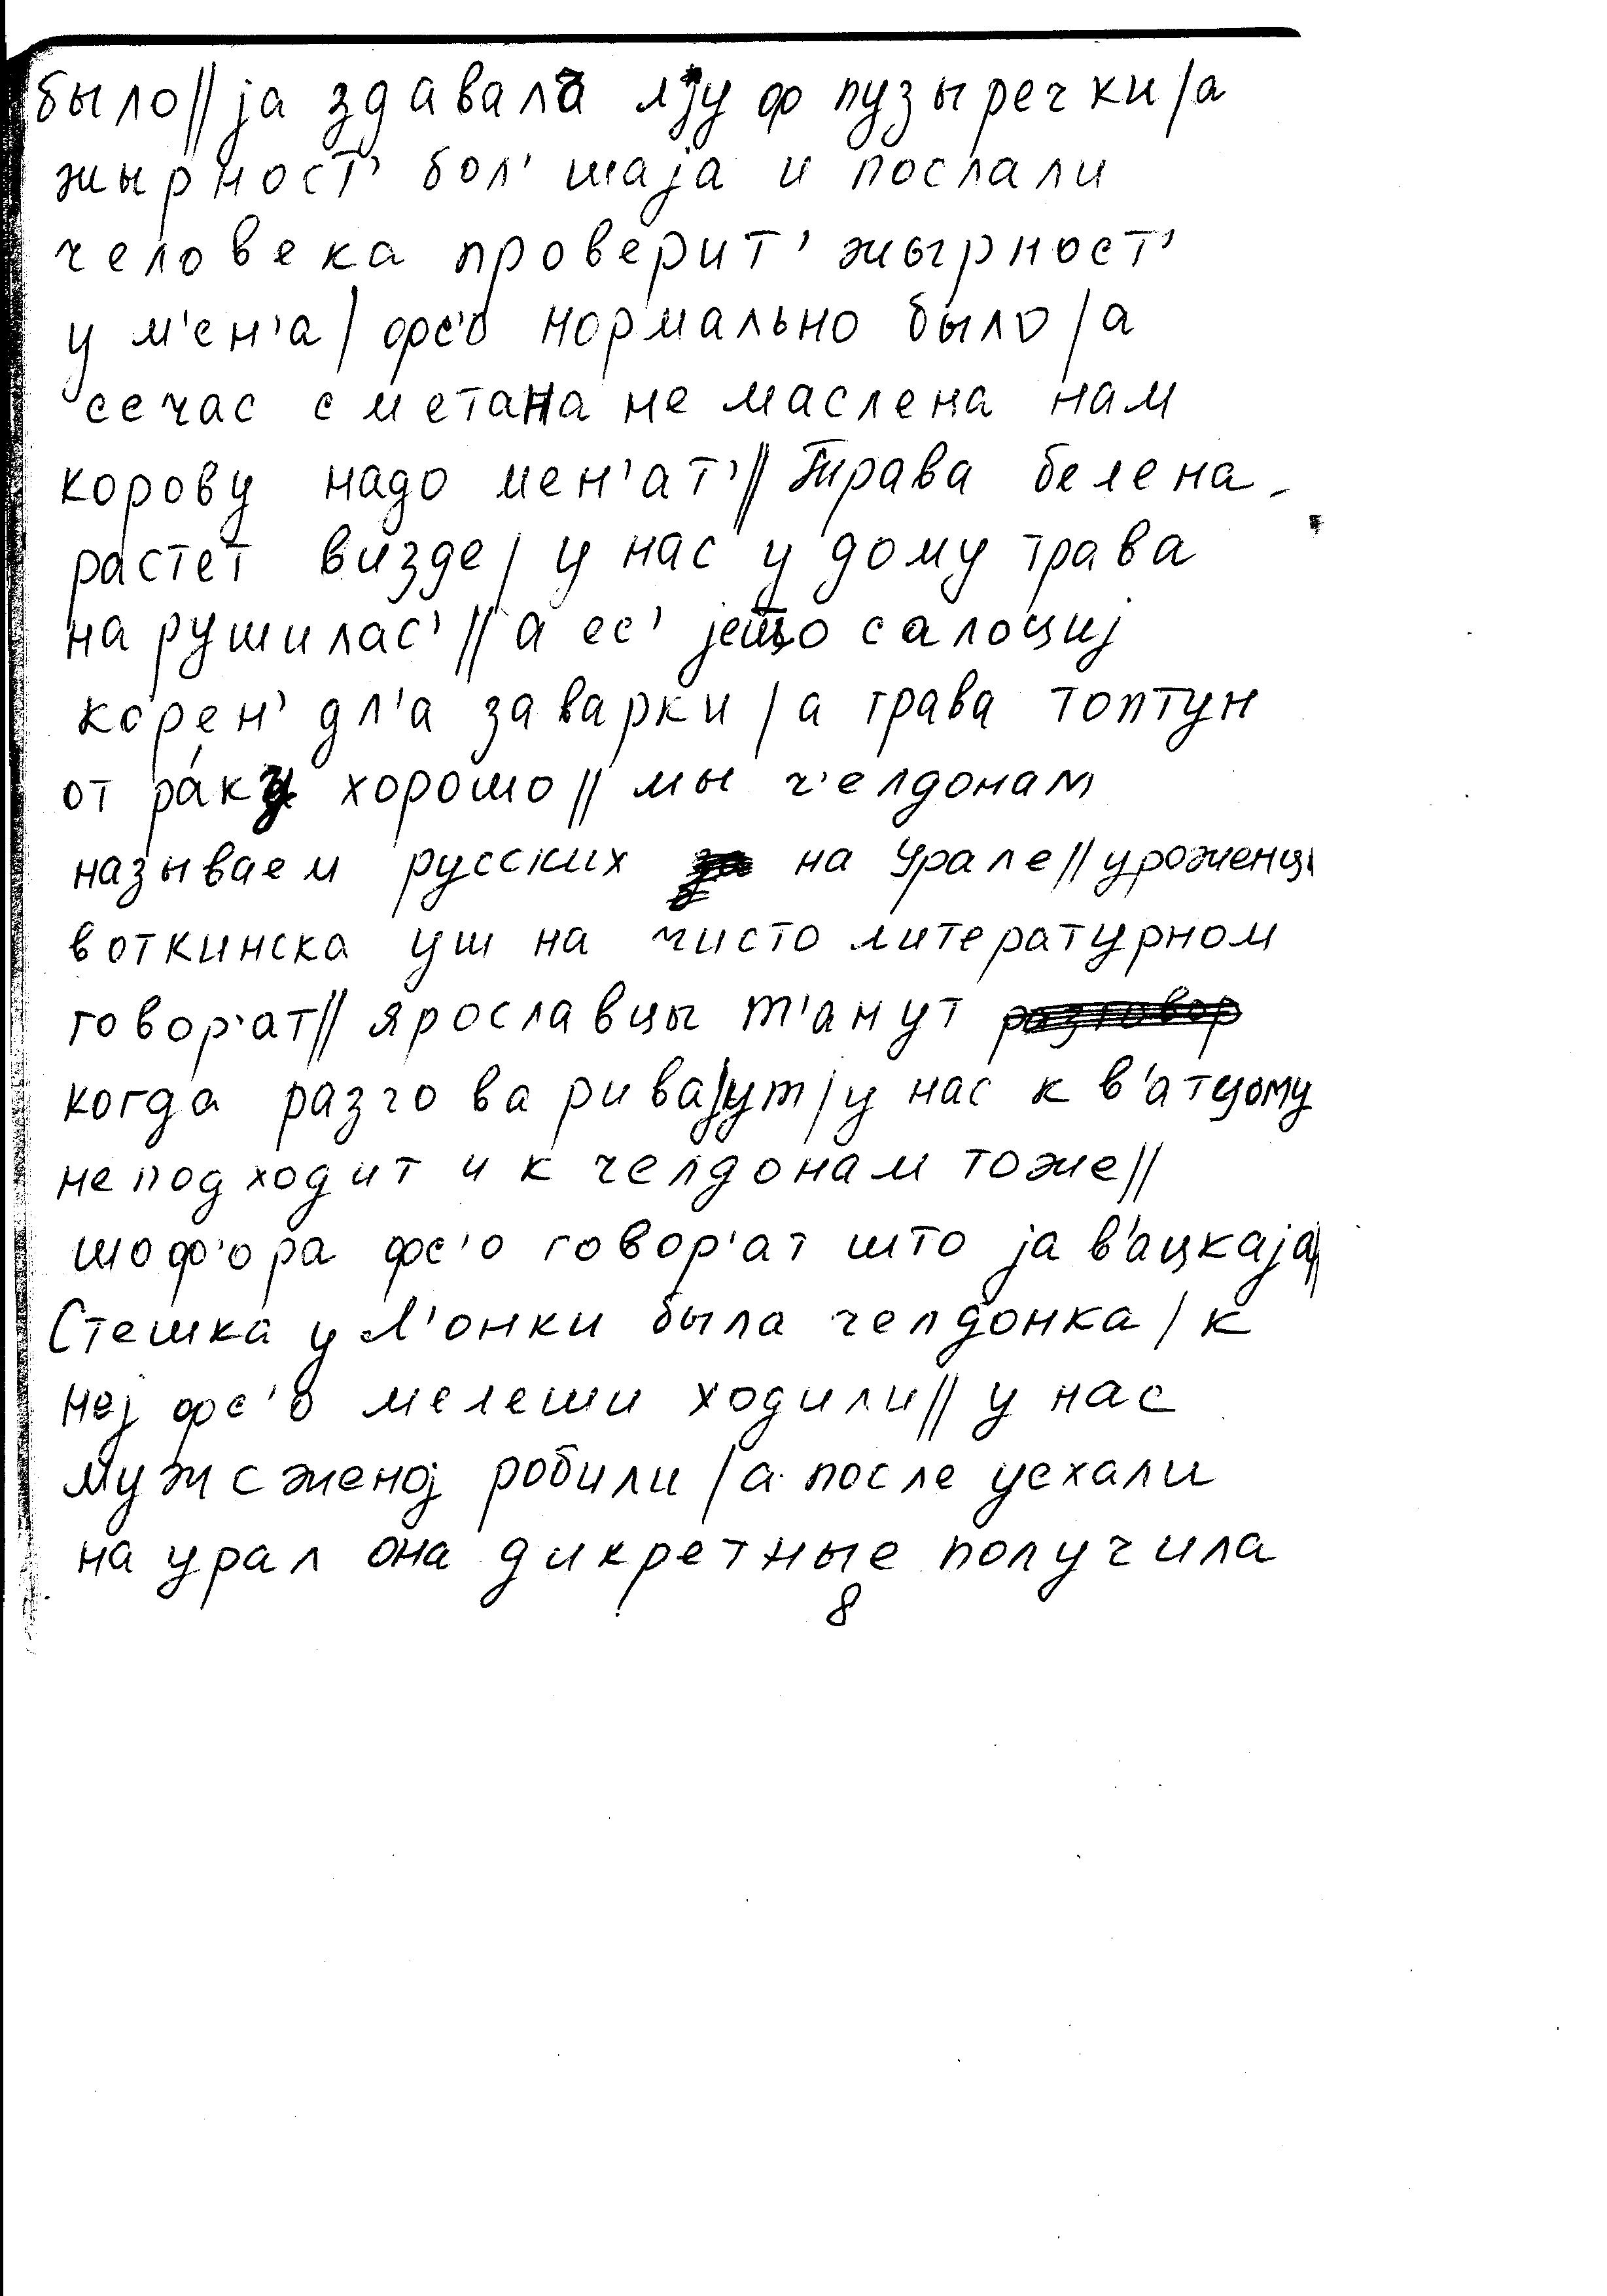 было // jа здавала jу ф пузыречки / а
жырност' бол'шаjа и послали
человека проверит' жырност'
у м'ен'а / фс'о нормально было / а
сечас сметана не маслена нам
корову надо мен'ат' // Трава белена
растет визде / у нас у дому трава
нарушилас' // а ес' jещо салоциj
корен' дл'а заварки / а трава топтун
от ра́ку хорошо // мы ч'елдонам
называем русских на Урале // уроженцы
воткинска уш на чисто литературном
говор'ат // ярославцы т'анут
когда разговариваjут / у нас к в'атцому
не подходит и к челдонам тоже //
шоф'ора фс'о говор'ат што jа в'ацкаjа //
Стешка у Л'онки была челдонка / к
неj фс'о мелеши ходили // у нас
муж с женоj робили / а после уехали
на урал она дикретные получила
8